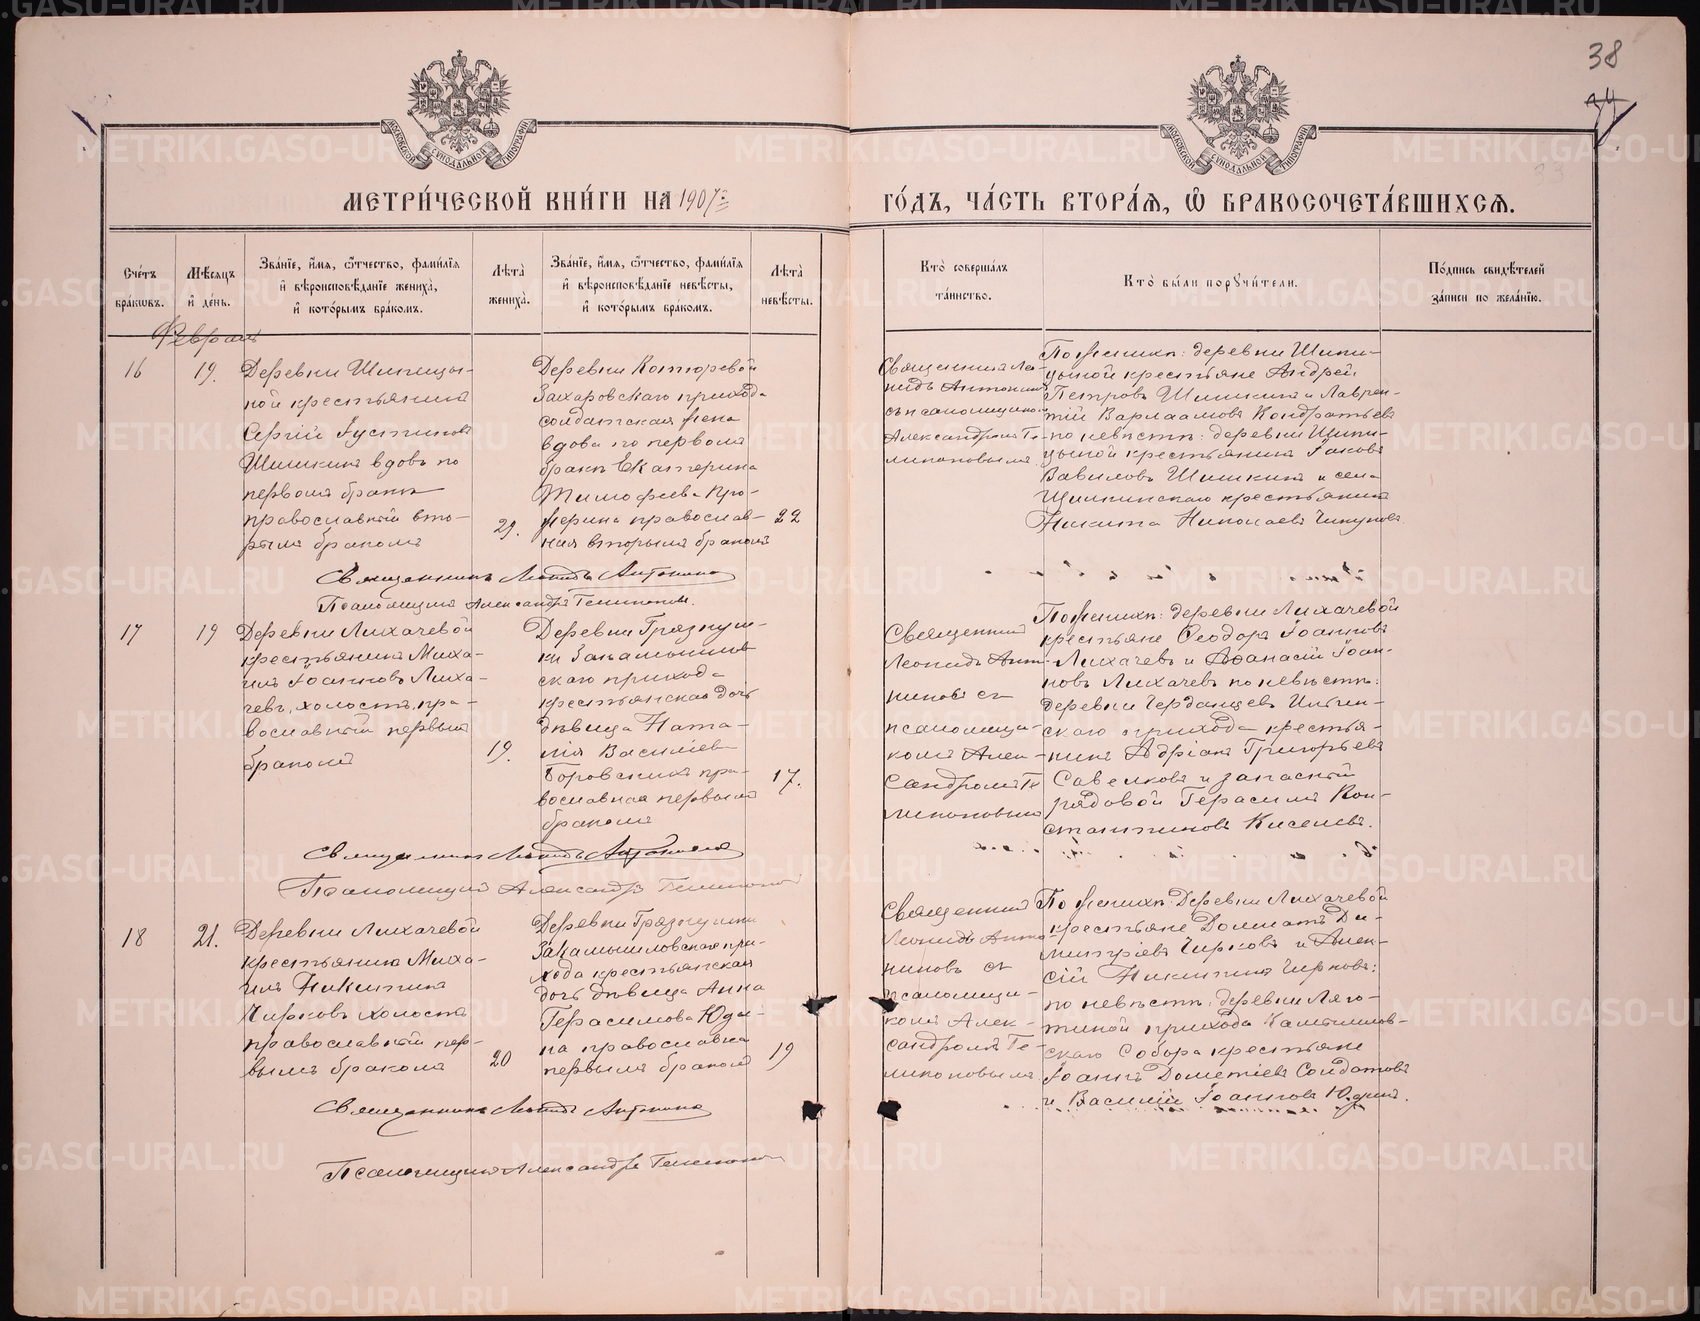 38
МЕТРИ́ЧЕСКОЙ КНИ́ГИ НА 1907 г.
ГО́ДЪ, ЧА́СТЬ ВТОРА́Я, Ѽ БРАКОСОЧЕТА́ВШИХСЯ.
Сче́тъ бра́кѡвъ.
Мѣ́сяцъ и҆ де́нь.
Зва́нїе, и҆́мя, ѻ҆́тчество, фами́лїя и҆ вѣроисповѣ́данїе жениха̀, и҆ кото́рымъ бра́комъ.
Лѣ́та жениха̀.
Зва́нїе, и҆́мя, ѻ҆́тчество, фами́лїя и҆ вѣроисповѣ́данїе невѣ́сты, и҆ кото́рымъ бра́комъ.
Лѣ́та невѣ́сты.
Кто̀ соверша́лъ та́инство.
Кто̀ бы́ли порꙋчи́тели.
По́дпись свидѣ́телей за́писи по жела́нїю.
Февраль
16
19.
Деревни Шипицы-
ной крестьянинъ
Сергій Іустиновъ
Шишкинъ вдовъ по
первомъ бракѣ
православный вто-
рымъ бракомъ
29.
Деревни Котюровой
Захаровскаго прихода
солдатская жена
вдова по первомъ
бракѣ Екатерина
Тимофеева Про-
жерина православ-
ная вторымъ бракомъ
22
Священникъ Лео-
нидъ Антониновъ
съ псаломщикомъ
Александромъ Те-
липоновымъ
По женихѣ: деревни Шипи-
цыной крестьяне Андрей
Петровъ Шишкинъ и Лаврен-
тій Варлаамовъ Кондратьевъ
по невѣстѣ: деревни Шипи-
цыной крестьянинъ Іаковъ
Вавиловъ Шишкинъ и села
Щилкинскаго крестьянинъ
Никита Николаевъ Чикуновъ.
Священникъ Леонидъ Антониновъ
Псаломщикъ Александръ Телипоновъ.
17
19
Деревни Лихачевой
крестьянинъ Миха-
илъ Іоанновъ Лиха-
чевъ, холостъ, пра-
вославный первымъ
бракомъ
19.
Деревни Грязнуш-
ки Закамышлов-
скаго прихода
крестьянская дочь
дѣвица Ната-
лія Васильева
Боровскихъ пра-
вославная первымъ
бракомъ
17.
Священникъ
Леонидъ Анто-
ниновъ съ
псаломщи-
комъ Алек-
сандромъ Те
липоновымъ
По женихѣ: деревни Лихачевой
крестьяне Феодоръ Іоанновъ
Лихачевъ и Афанасій Іоан-
новъ Лихачевъ по невѣстѣ:
деревни Черданцевъ Ильин-
скаго прихода крестья-
нинъ Адріанъ Григорьевъ
Савелковъ и запасный
рядовой Герасимъ Кон-
стантиновъ Киселевъ.
Священникъ Леонидъ Антониновъ
Псаломщикъ Александръ Телипоновъ
18
21.
Деревни Лихачевой
крестьянинъ Миха-
илъ Никитинъ
Чирковъ холостъ
православный пер-
вымъ бракомъ
20
Деревни Грязнушки
Закамышловскаго при-
хода крестьянская
дочь дѣвица Анна
Герасимова Юди-
на православная
первымъ бракомъ
19
Священникъ
Леонидъ Анто-
ниновъ съ
псаломщи-
комъ Алек-
сандромъ Те-
липоновымъ
По женихѣ: Деревни Лихачевой
крестьяне Доминатъ Ди-
митріевъ Чирковъ и Алек-
сій Никитинъ Чирковъ;
по невѣстѣ: деревни Ляго-
тиной прихода Камышлов-
скаго Собора крестьяне
Іоаннъ Дометіевъ Солдатовъ
и Василій Іоанновъ Юдинъ.
Священникъ Леонидъ Антониновъ
Псаломщикъ Александръ Телипоновъ
METRIKI.GASO-URAL.RU